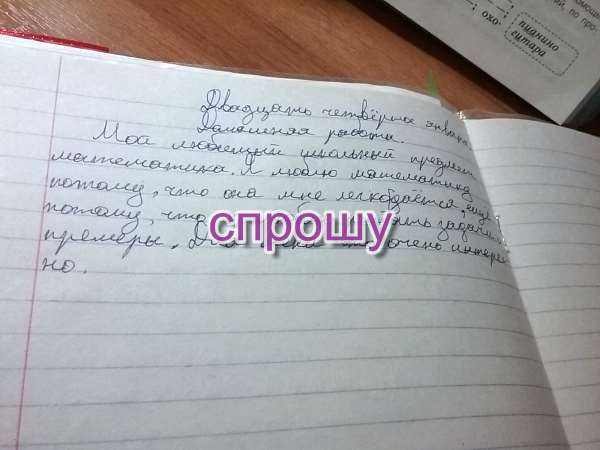 охо
пианино
гитара
Двадцать четвёртое января
Домашняя работа.
Мой любимый школьный предмет
математика. Я люблю математику
потому, что она мне легко даётся, ещё
потому, что задачи
примеры. Для меня это очень интерес
но.
спрошу